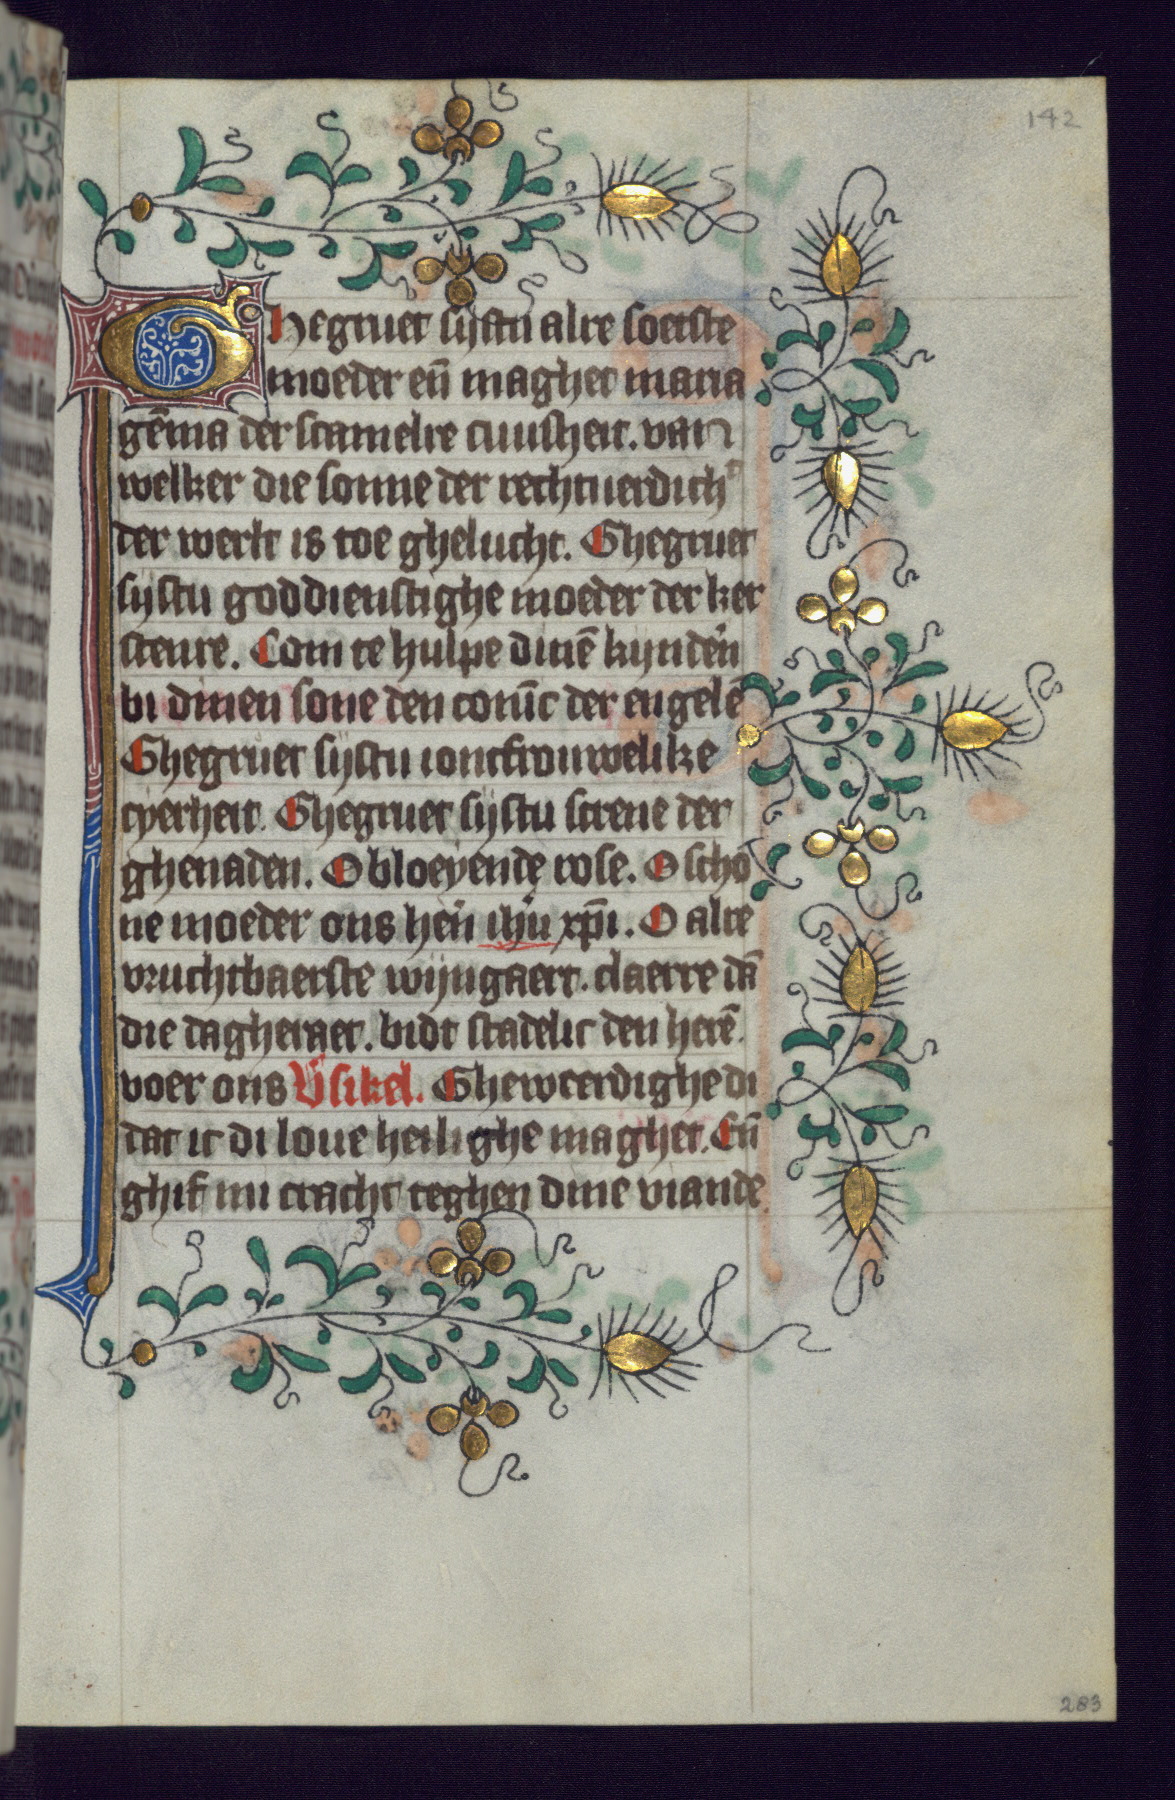 142
Ghegruet sijstu alre soetste
moeder eñ maghet maria
gēma der scamelre cuusheit. van
welker die sonne der rechtuerdich
der werlt is toe ghelucht. Ghegruet
sijstu goddienstighe moeder der ker
stenre. Com te hulpe dinē kijnderē
bi dinen sone den coninc der engelē
Ghegruet sijstu ioncfrouwelike
cyerheit. Ghegruet sijstu screne der
ghenaden. O bloeyende rose. O scho
ne moeder ons herē ihū xpī. O alre
vruchtbaerste wijngaert. claerre dā
die dagheraet. bidt stadelic den herē.
voer ons Vsikel. Gheweerdighe di
dat ic di loue heilighe maghet. Eñ
ghif mi cracht teghen dine viande.
283